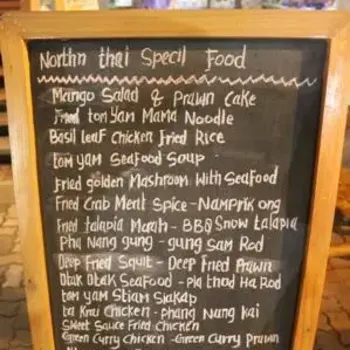 Northn thai Specil Food
Mango Salad & Prawn Cake
Fried tom Yam Mama Noodle
Basil leaf Chicken Fried Rice
tom yam Seafood Soup
Fried golden Mashroom With Seafood
Fried Crab Ment Spice - Namprik ong
Fried talapia Marah - BBQ Snow talapia
Pha Nang gung - gung Sam Rod
Deep Fried Squit - Deep Fried Prawn
Otak Otak Seafood - Pla thod Ha Rod
tom yam Stiam Siakap
ta Krai Chicken - Phang Nang kai
Sweet Sauce Fried Chicken
Green Curry Chicken - Green Curry Prawn